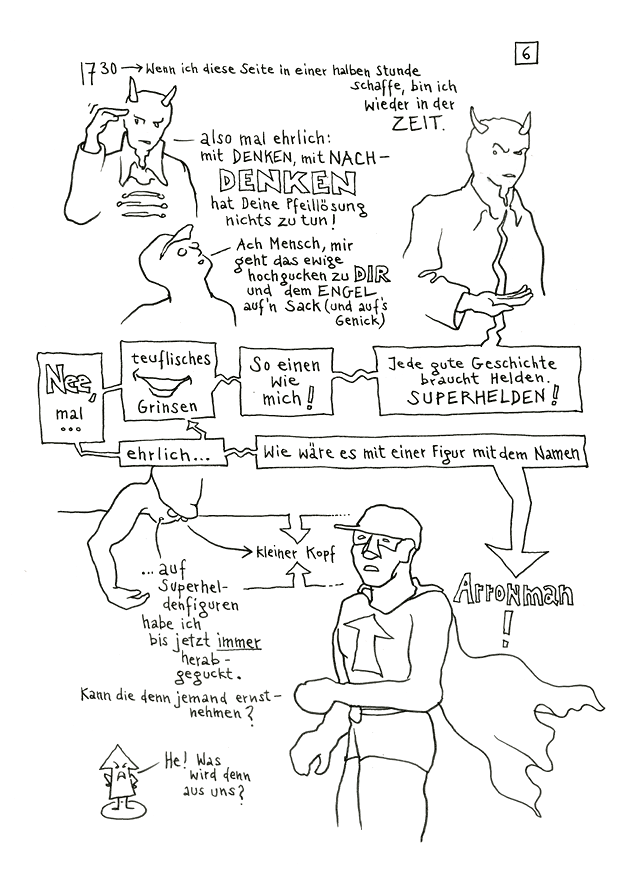 6
1730 → Wenn ich diese Seite in einer halben Stunde
schaffe, bin ich
wieder in der
ZEIT.
also mal ehrlich:
mit DENKEN, mit NACH-
DENKEN
hat Deine Pfeillösung
nichts zu tun!
Ach Mensch, mir
geht das ewige
hochgucken zu DIR
und dem ENGEL
auf'n Sack (und auf's
Genick)
Nee,
mal
...
teuflisches
Grinsen
So einen
wie
mich!
Jede gute Geschichte
braucht Helden.
SUPERHELDEN!
ehrlich...
Wie wäre es mit einer Figur mit dem Namen
Arrowman
!
kleiner Kopf
... auf
Superhel-
denfiguren
habe ich
bis jetzt immer
herab-
geguckt.
Kann die denn jemand ernst-
nehmen?
He! Was
wird denn
aus uns?